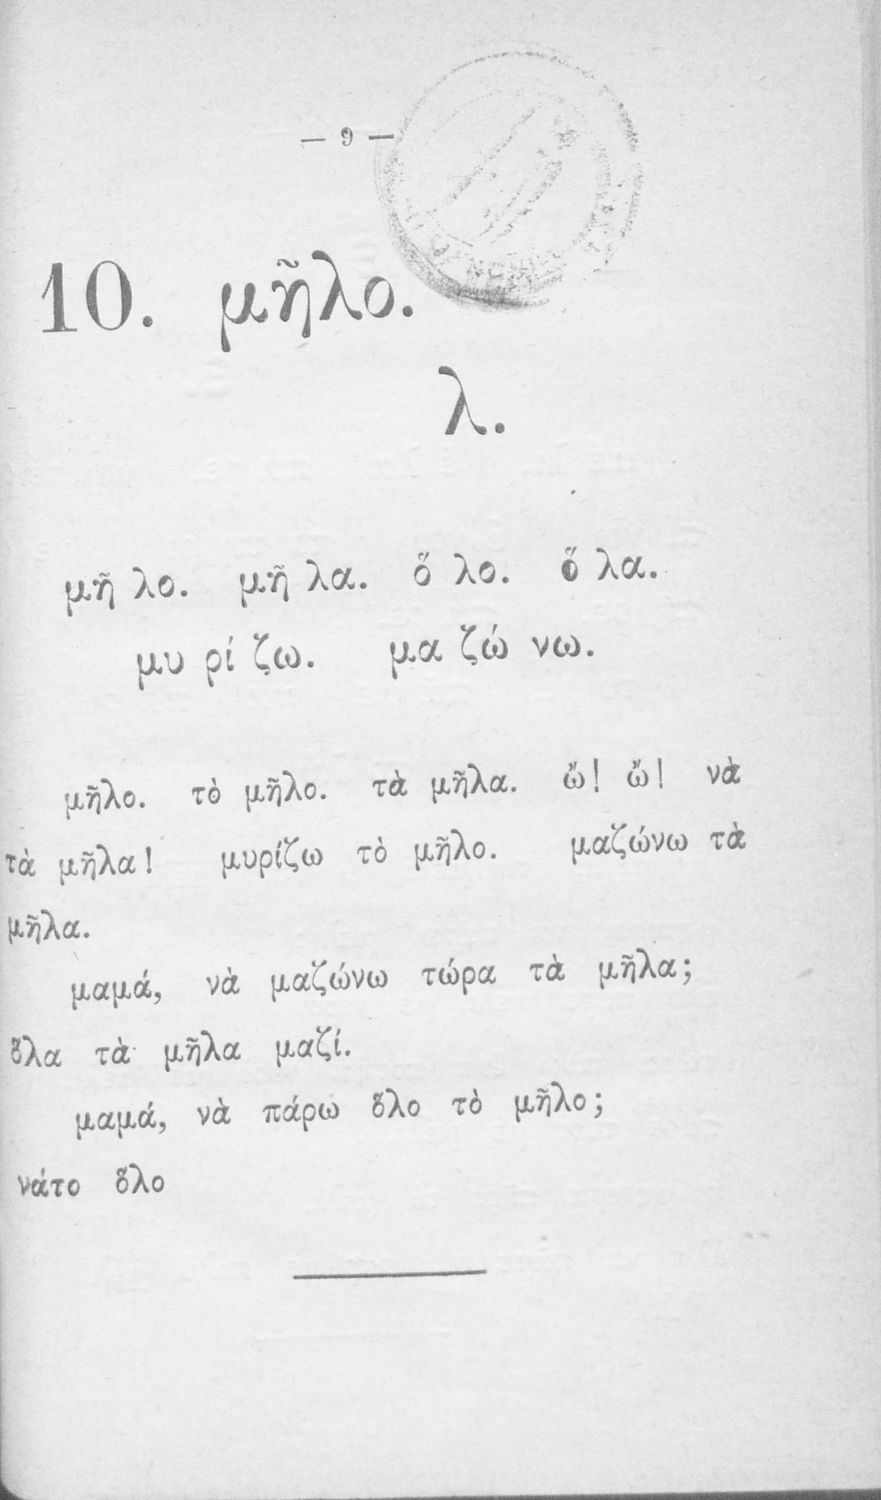 — 9 —
10. μῆλο.
λ.
μῆ λο. μῆ λα. ὅ λο. ὅ λα.
μυ ρί ζω. μα ζώ νω.
μῆλο. τὸ μῆλο. τὰ μῆλα. ὤ! ὤ! νὰ
τὰ μῆλα! μυρίζω τὸ μῆλο. μαζώνω τὰ
μῆλα.
μαμά, νὰ μαζώνω τώρα τὰ μῆλα;
ὅλα τὰ μῆλα μαζί.
μαμά, νὰ πάρω ὅλο τὸ μῆλο;
νάτο ὅλο